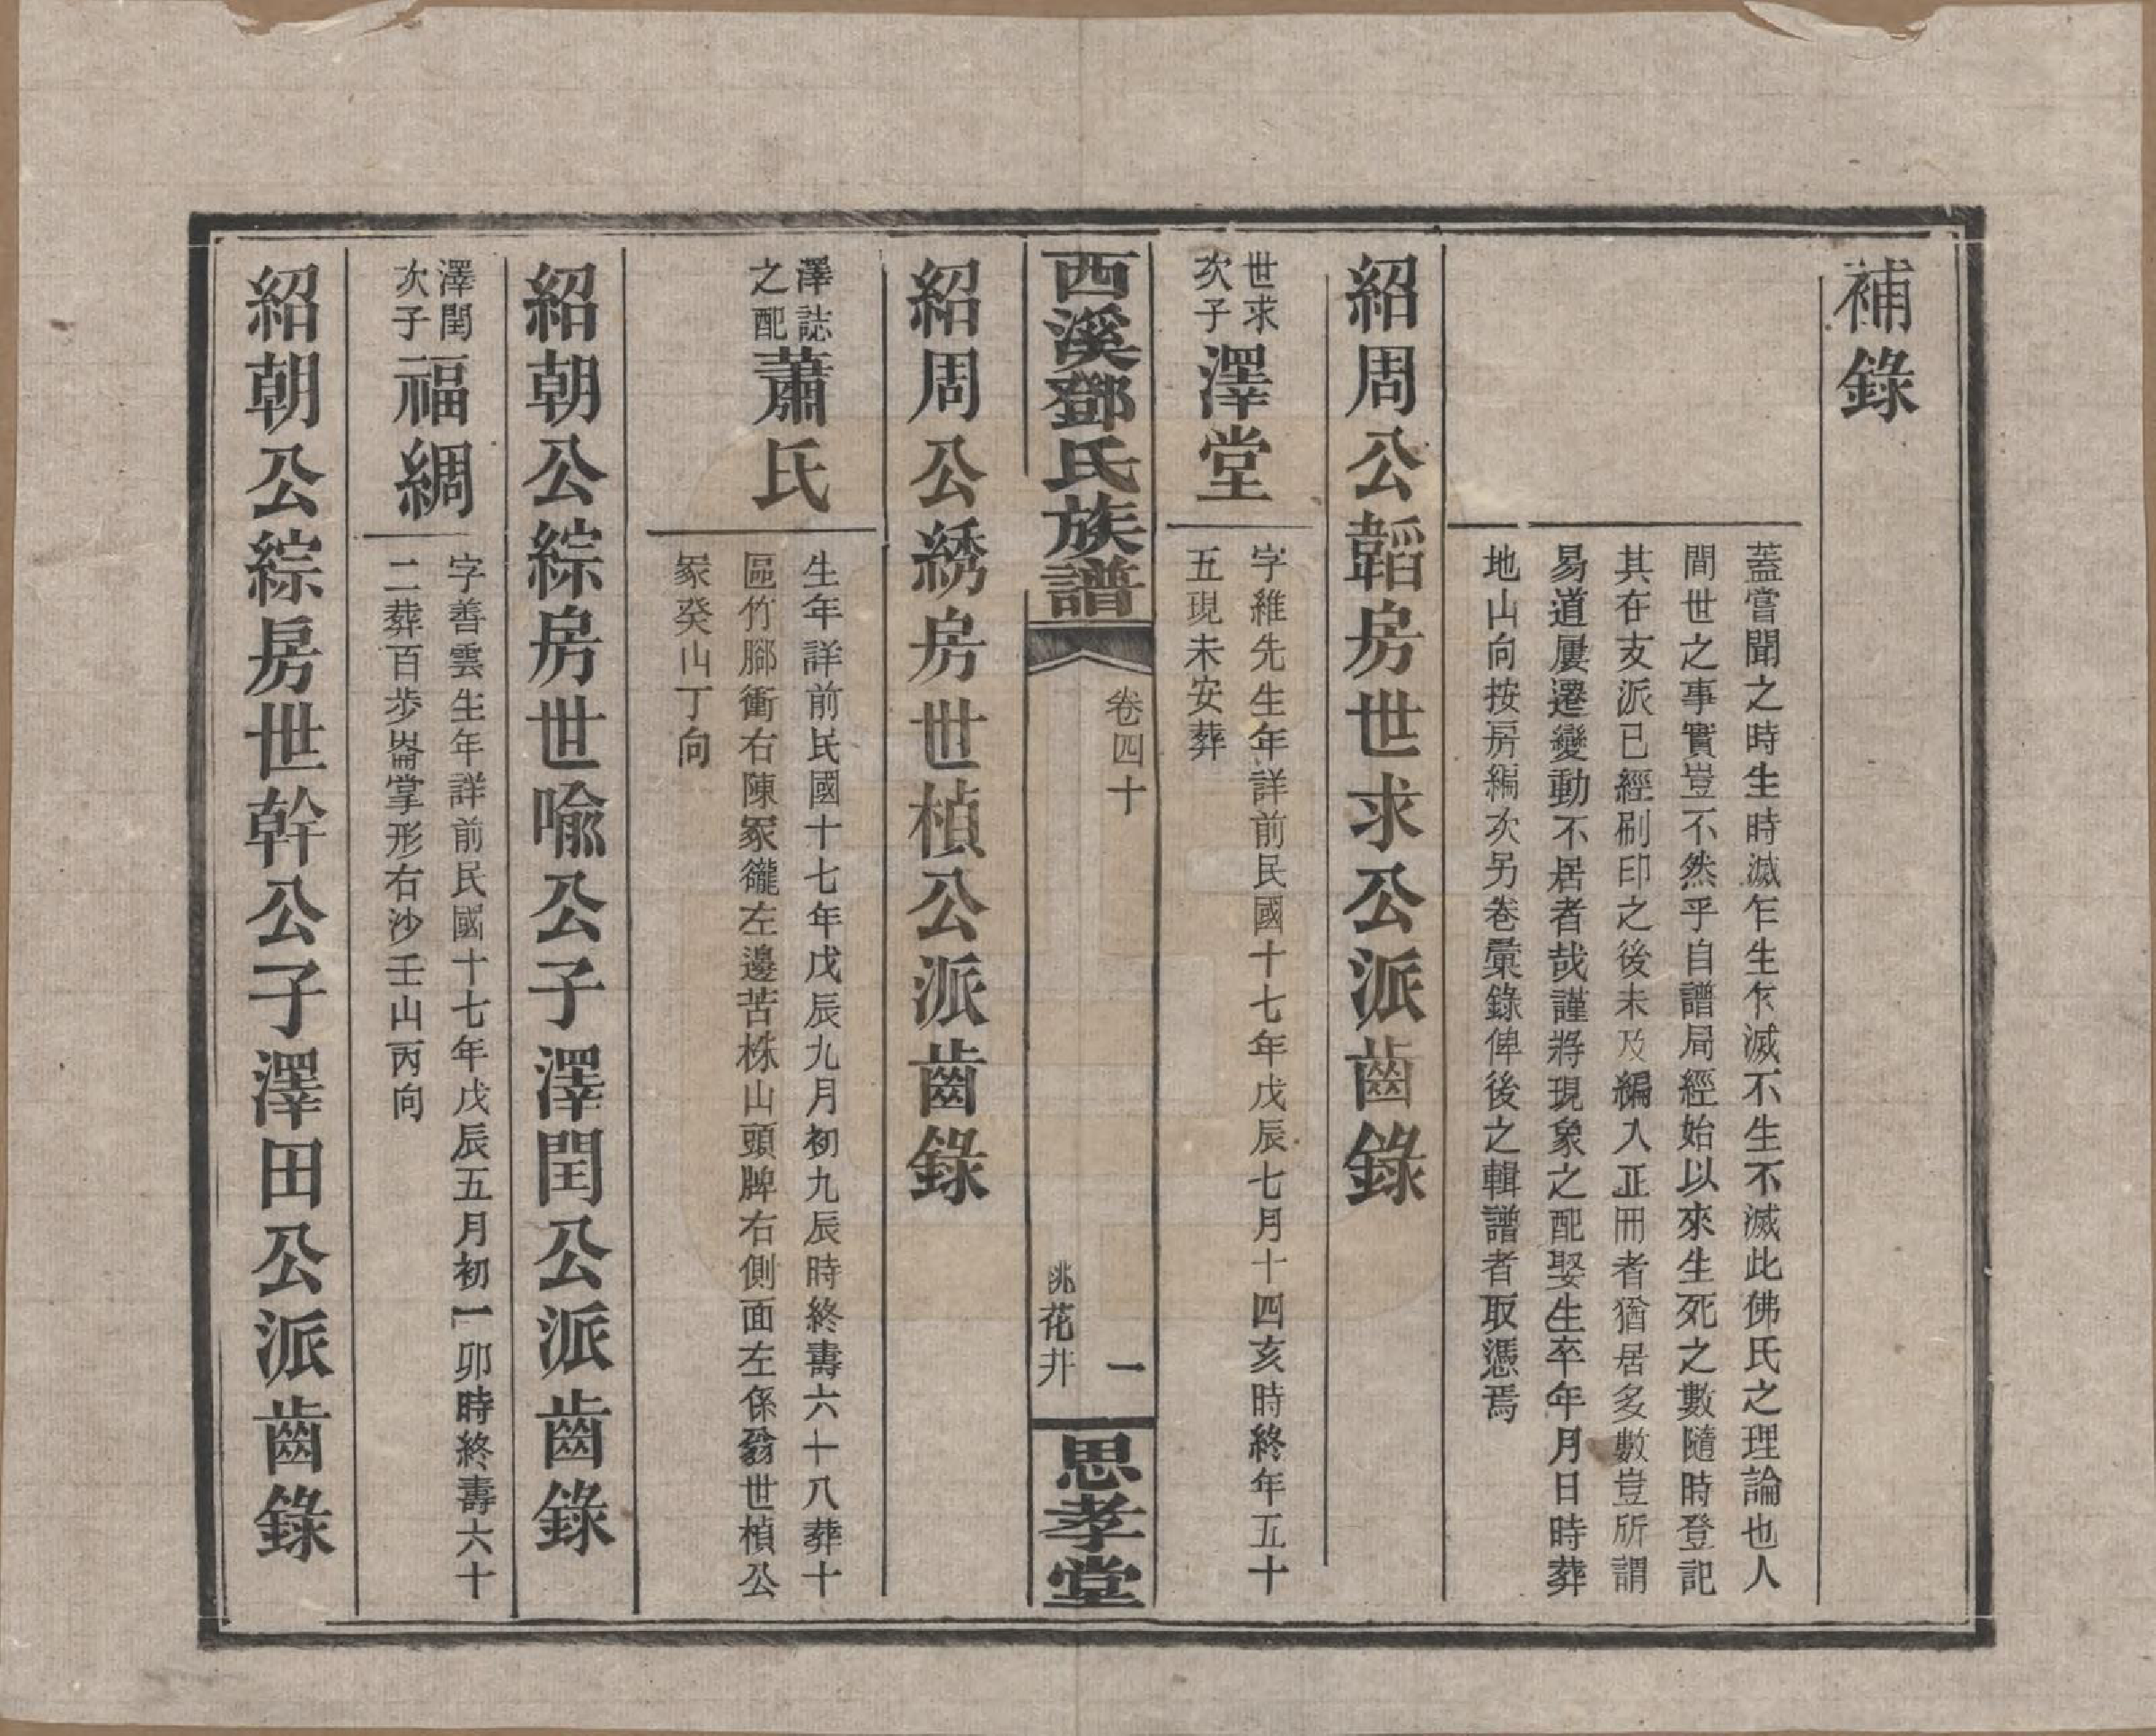 補錄
蓋嘗聞之時生時滅乍生乍滅不生不滅此佛氏之理論也人
間世之事實豈不然乎自譜局經始以來生死之數隨時登記
其在支派已經刷印之後未及編入正冊者猶居多數豈所謂
易道屢遷變動不居者哉謹將現象之配娶生卒年月日時葬
地山向按房編次另卷彙錄俾後之輯譜者取憑焉
紹周公韜房世求公派齒錄
世求
次子
澤堂
字維先生年詳前民國十七年戊辰七月十四亥時終年五十
五現未安葬
西溪鄧氏族譜
卷四十
一
桃花井
思孝堂
紹周公綉房世楨公派齒錄
澤誌
之配
蕭氏
生年詳前民國十七年戊辰九月初九辰時終壽六十八葬十
區竹腳衝右陳家巃左邊苦株山頭脾右側面左係翁世楨公
冢癸山丁向
紹朝公綜房世喻公子澤閏公派齒錄
澤閏
次子
福綢
字善雲生年詳前民國十七年戊辰五月初一卯時終壽六十
二葬百步崙掌形右沙壬山丙向
紹朝公綜房世幹公子澤田公派齒錄